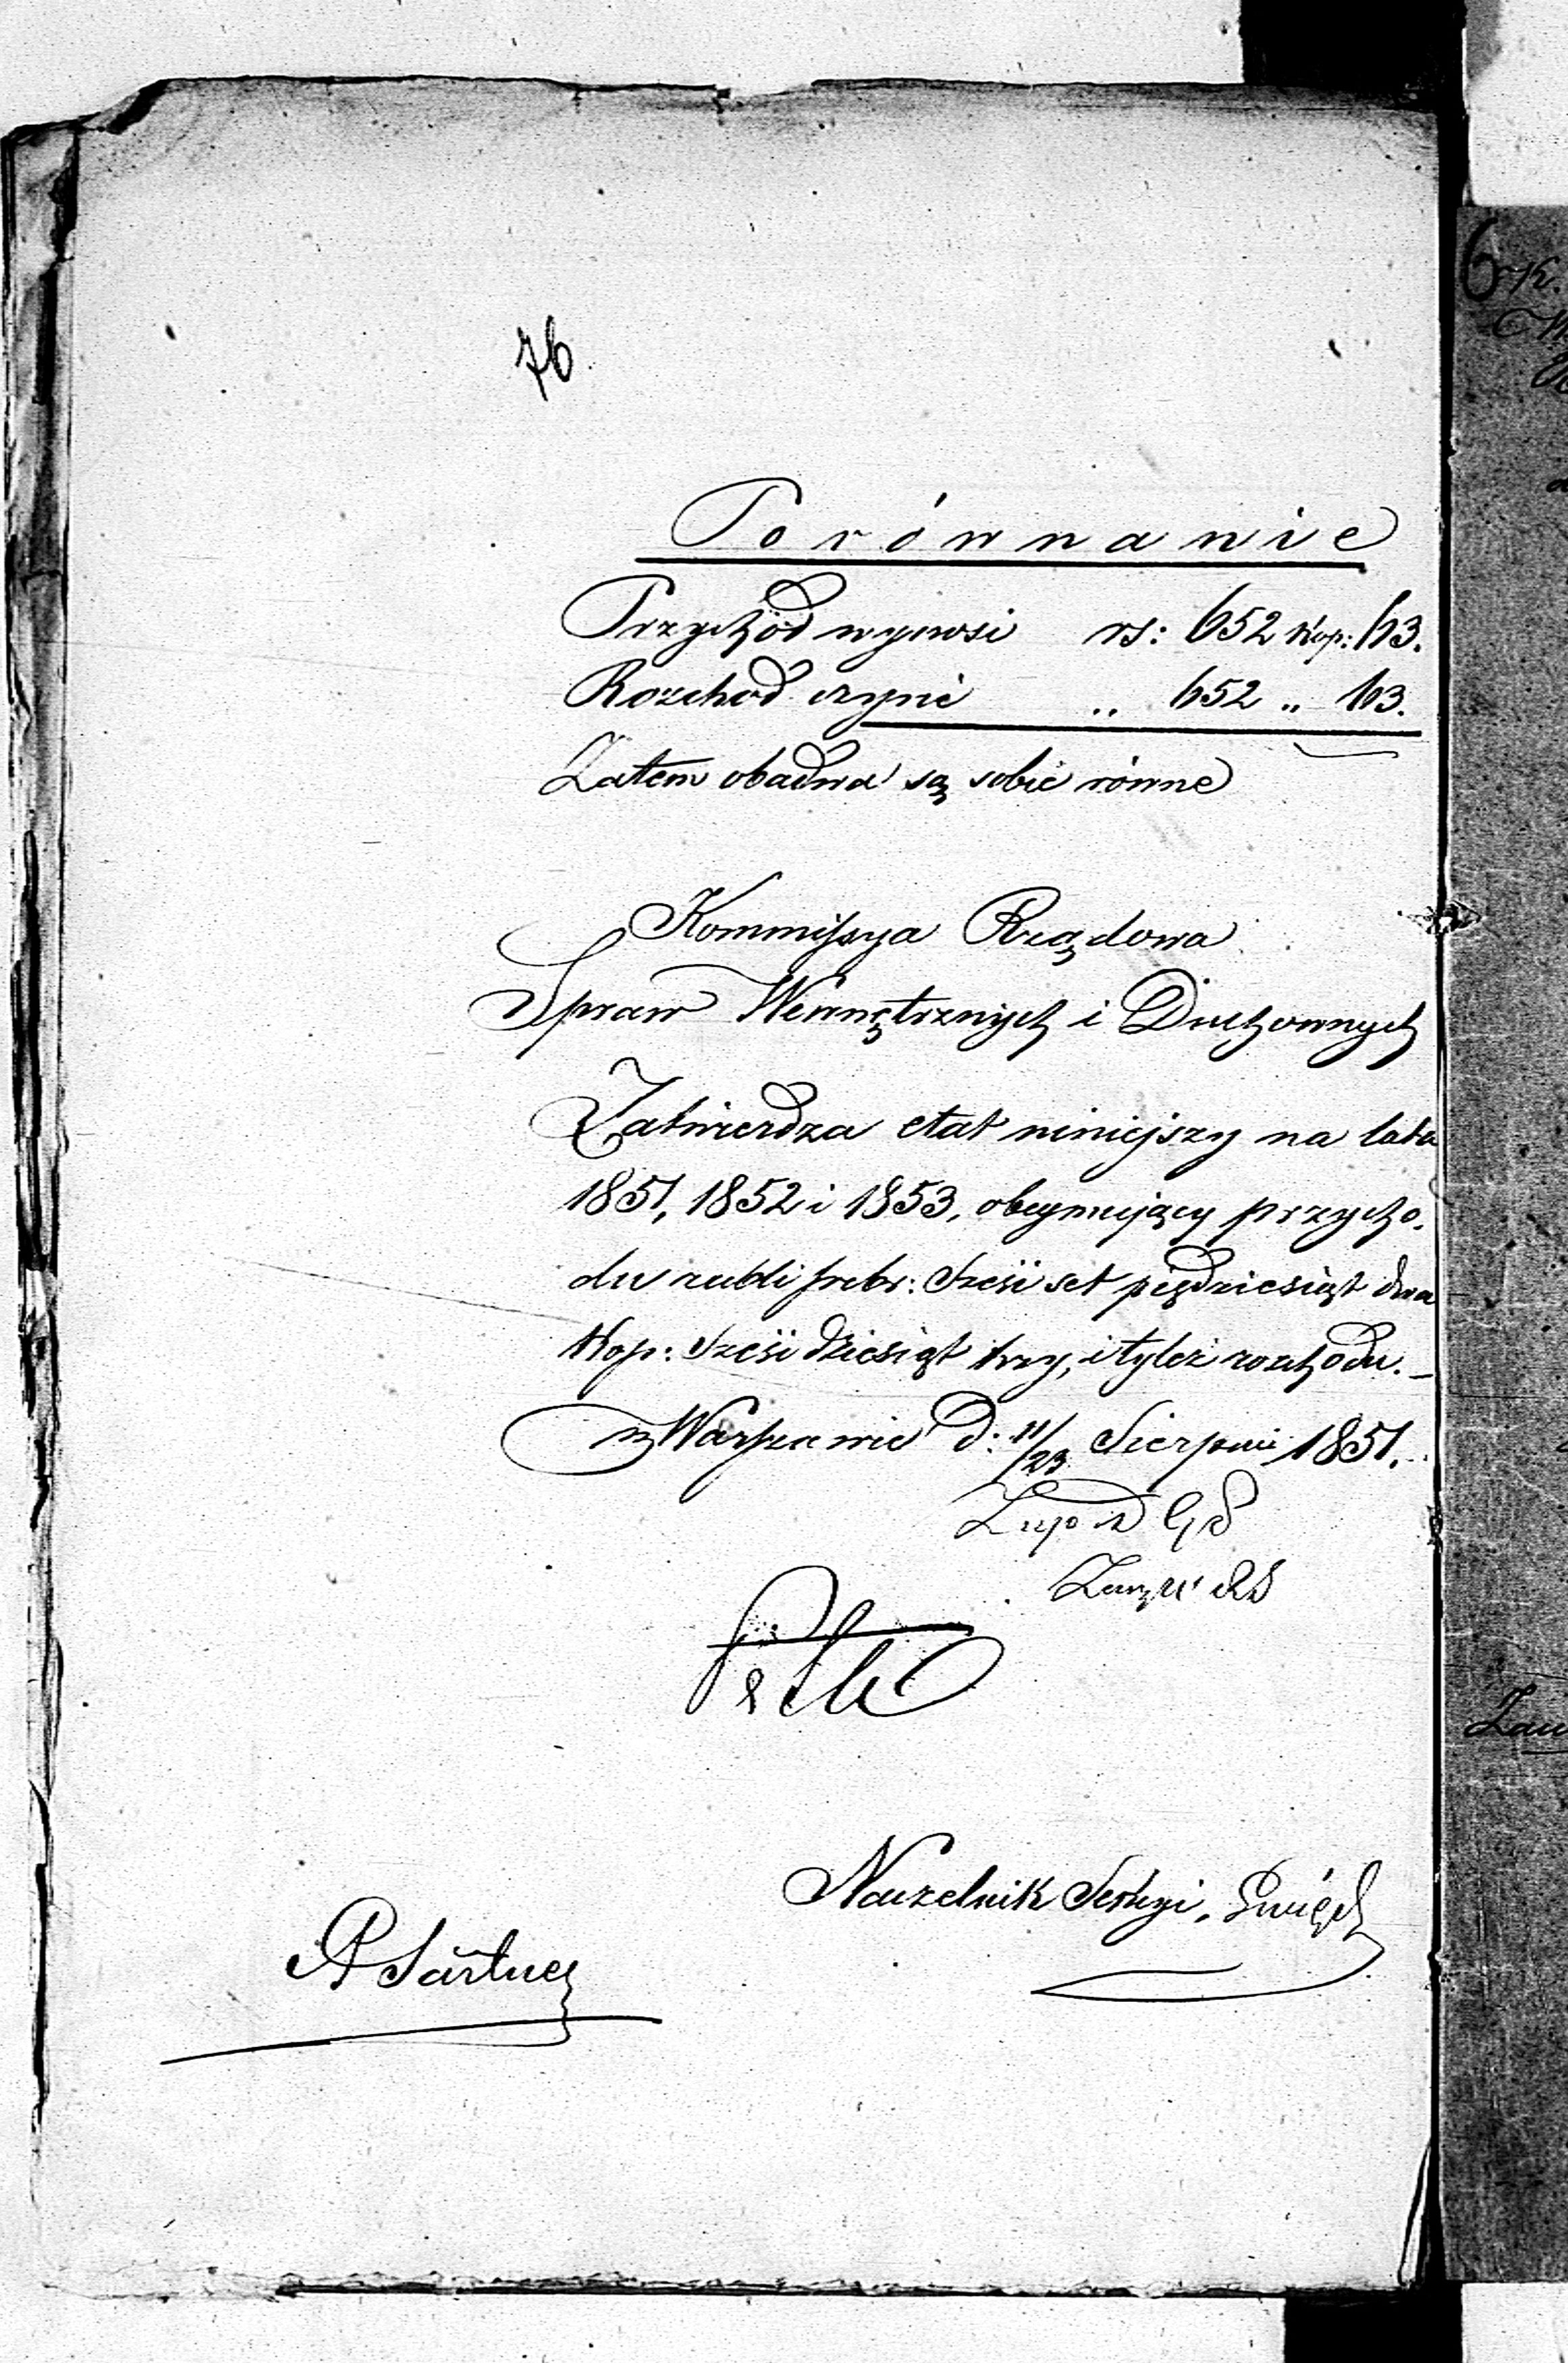 76.
Porównanie
Przychód wynosi rs: 652 kop: 63.
Rozchod czyni „ 652 „ 63.
Zatem obadwa są sobie równe
Kommissya Rządowa
Spraw Wewnętrznych i Duchownych
Zatwierdza etat niniejszy na lata
1851, 1852 i 1853, obeymujący przycho-
du rubli srebr: Sześć set piędziesiąt dwa
kop: Sześćdziesiąt trzy, i tyleż rozchodu.
w Warszawie d: 11/23 Sierpnia 1851.
Naczelnik Sekcyi,